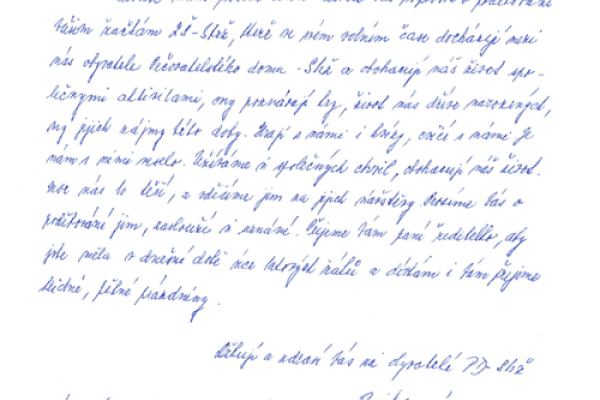 Vašim žáčkům ZŠ-Strž, kteří ve svém volném čase docházejí mezi
nás obyvatele Pečovatelského domu - Strž a obohacují náš život spo-
lečnými aktivitami, ony poznávají ty, život nás dříve narozených,
my jejich zájmy této doby. Hrají s námi i hry, cvičí s námi je
nám s nimi veselo. Užíváme si společných chvil, obohacují náš život.
Moc nás to těší, a vděčíme jim za jejich návštěvy. Prosíme Vás o
poděkování jim, zaslouží si uznání. Přejeme Vám paní ředitelko, aby
jste měla v dnešní době více takových žáků a dětem i Vám přejeme
klidné, pěkné prázdniny.
Děkují a zdraví Vás za obyvatelé PD-Strž